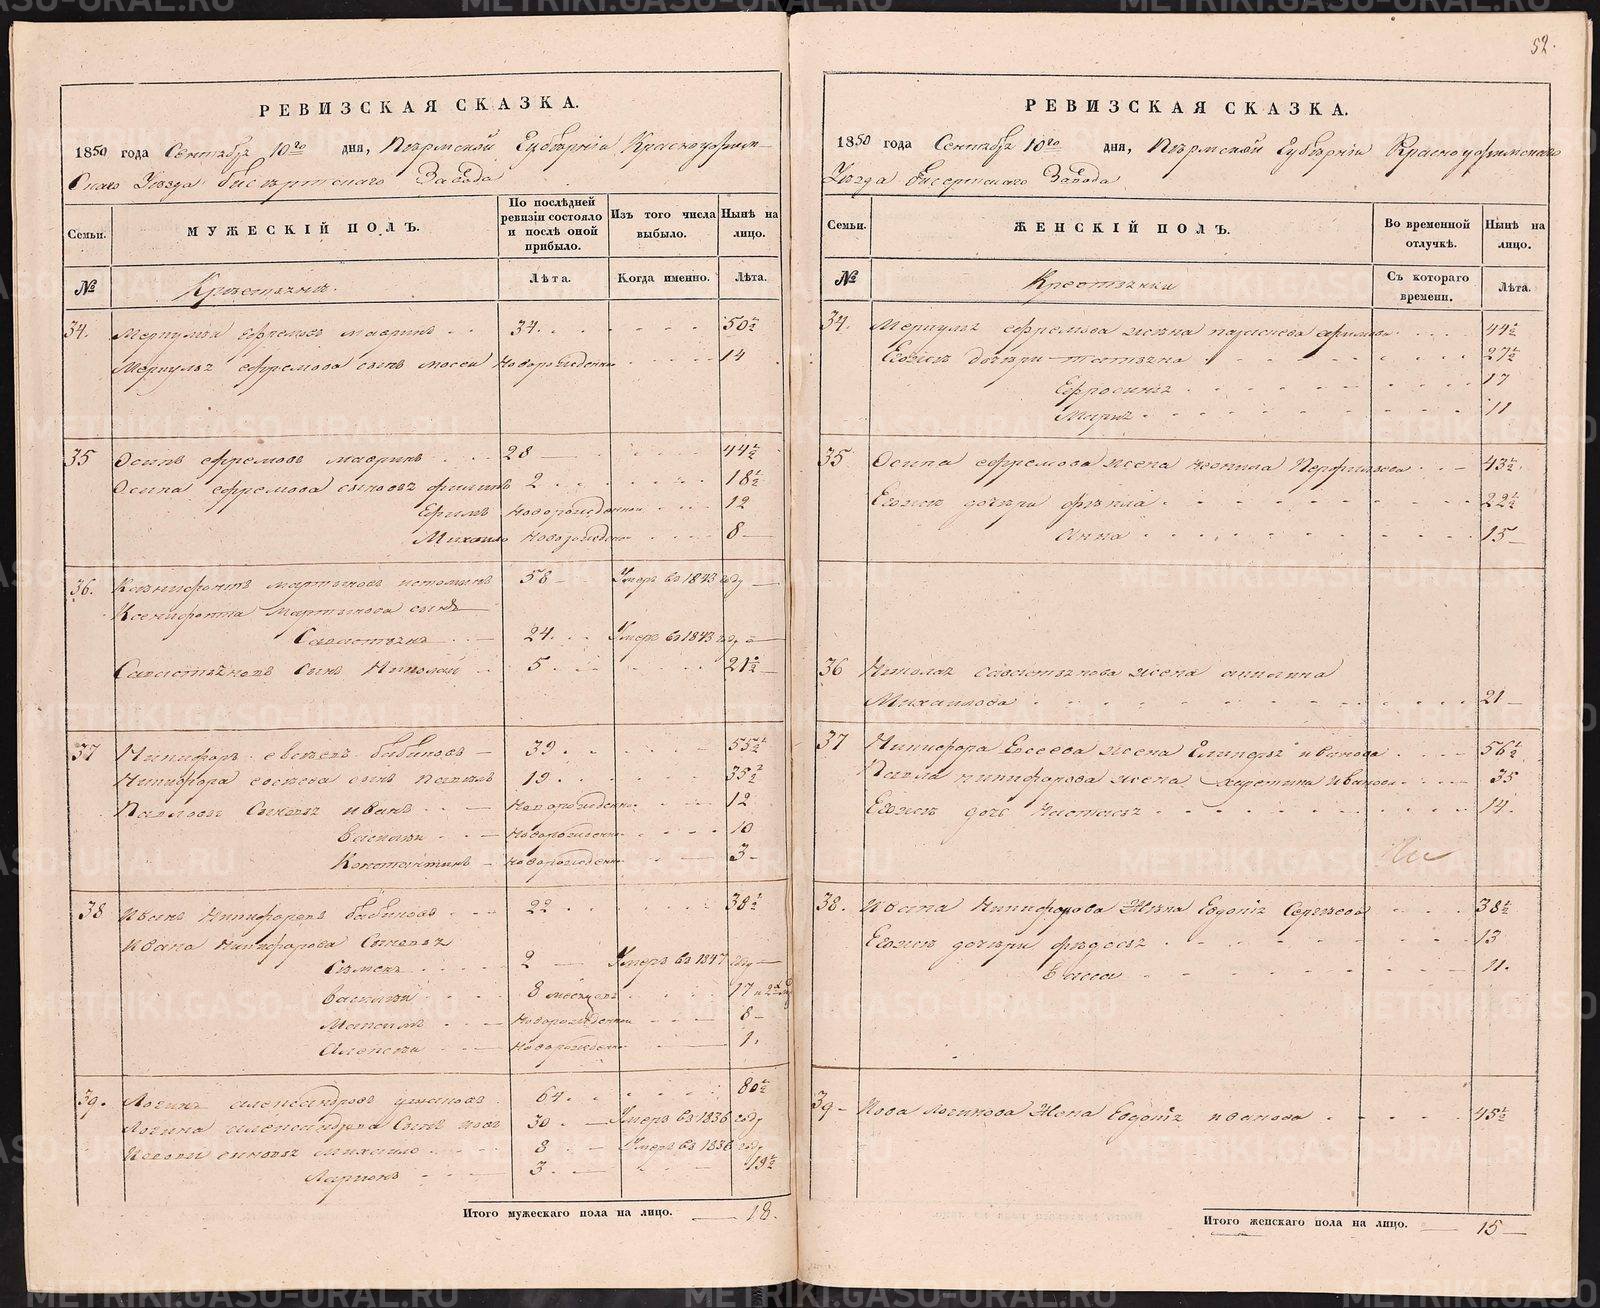 52.
РЕВИЗСКАЯ СКАЗКА.
1850 года Сентября 10го дня, Пермской Губерніи Красноуфим-
скаго Уезда Бисертскаго Завода
Семьи.
МУЖЕСКІЙ ПОЛЪ.
По послѣдней ревизіи состояло и послѣ оной прибыло.
Изъ того числа выбыло.
Нынѣ на лицо.
№
Крестьяне.
Лѣта.
Когда именно.
Лѣта.
34. Меркулъ Ефремовъ 34. 50½
Меркула Ефремова сынъ Новорожденной 14
35 Осипъ Ефремовъ 28 44½
Осипа Ефремова сыновья Филипъ 2 18½
Ефимъ Новорожденной 12
Михаило Новорожденной 8
36. Ксенифонтъ Мартыновъ 58 Умеръ въ 1843 году
Ксенифонта Мартынова сынъ
Савастьянъ 24. Умеръ въ 1843 году
Савастьяновъ сынъ Николай 5 21½
37 Никифоръ Евсѣевъ Бабиновъ 39. 55½
Никифора Евсѣева сынъ Павелъ 19. 35½
Павловы Сыновья Иванъ Новорожденной 12
Василей Новорожденной 10
Константинъ Новорожденной 3
38 Иванъ Никифоровъ Бабиновъ 22 38½
Ивана Никифорова Сыновья
Семенъ 2 Умеръ въ 1847 году
Василей 8 месяцовъ 17
Максимъ Новорожденной 8
Алексѣй Новорожденной 1.
39. Логинъ Александровъ 64. 80½
Логина Александрова Сынъ Иовъ 30. Умеръ въ 1836 году
Иововы сыновья Михаило 8 Умеръ въ 1836 году
Ларионъ 3. 19½
Итого мужескаго пола на лицо. 18.
РЕВИЗСКАЯ СКАЗКА.
1850 года Сентября 10го дня, Пермской Губерніи Красноуфимскаго
Уезда Бисертскаго Завода
Семьи.
ЖЕНСКІЙ ПОЛЪ.
Во временной отлучкѣ.
Нынѣ на лицо.
№
Крестьянки
Съ котораго времени.
Лѣта.
34. Меркула Ефремова жена 44½
Егожъ дочери Татьяна 27½
Ефросинья 17
Марья 11
35 Осипа Ефремова жена Неонила 43½
Егожъ дочери Фекла 22½
Анна 15
36 Николая Савастьянова жена Акилина
Михаилова 21
37 Никифора Евсеева жена Иванова 56½
Павла Никифорова жена Харетина Иванова 35
Егожъ дочь Настасья 14.
38. Ивана Никифорова Жена Евдокія Сергѣева 38½
Егожъ дочери Федосья 13
Васса 11.
39 Иова Логинова Жена Евдокія Иванова 45½
Итого женскаго пола на лицо. 15
METRIKI.GASO-URAL.RU